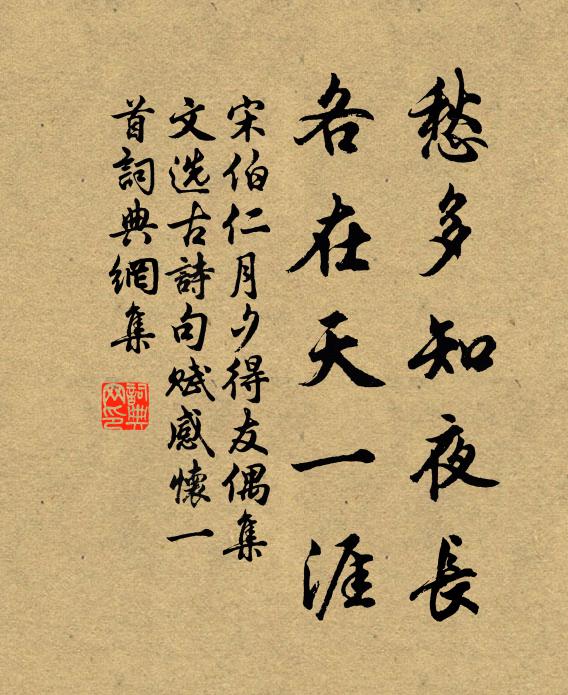 愁多知夜長
各在天一涯
宋伯仁月夕得友偶集
文选古詩句赋感懷一
首詞典網集
詞典
网印